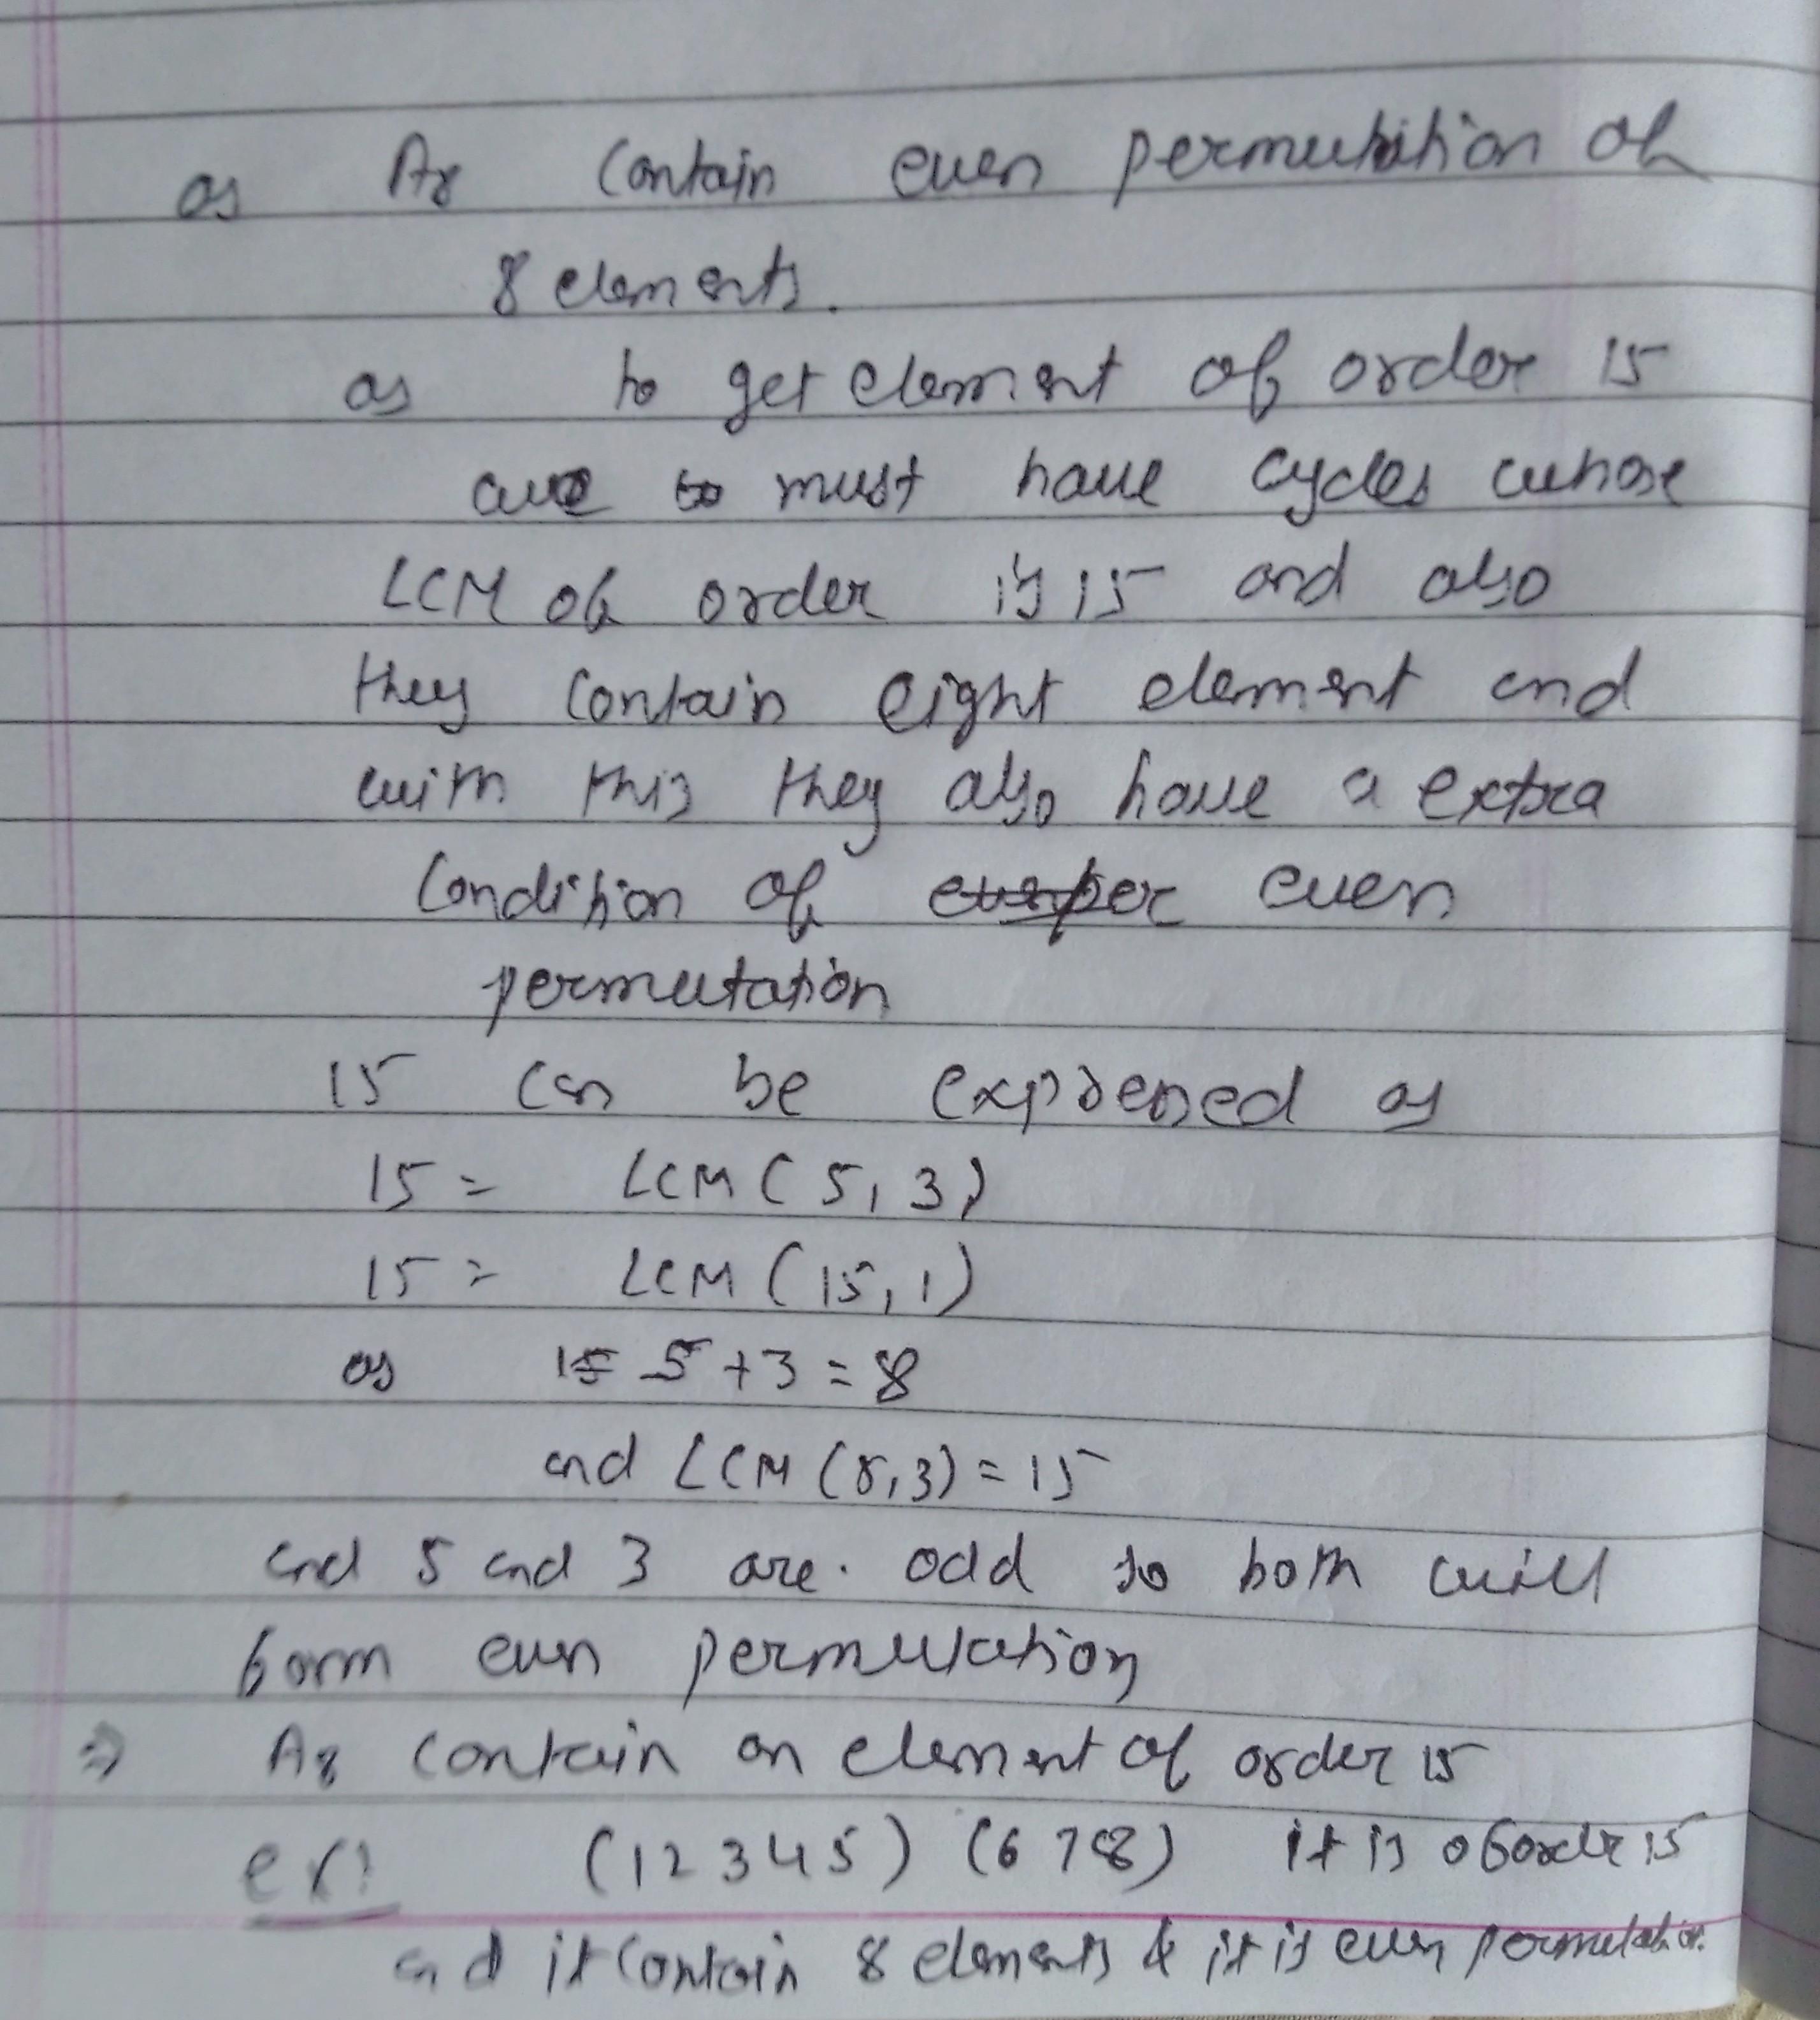 as A8 contain even permutation of
8 elements.
as to get element of order 15
we must have cycles whose
LCM of order is 15 and also
they contain eight element and
with this they also have a extra
condition of even
permutation
15 can be expressed as
15 = LCM (5, 3)
15 = LCM (15, 1)
as 5 + 3 = 8
and LCM (5, 3) = 15
and 5 and 3 are. odd so both will
form even permutation
⇒ A8 contain an element of order 15
ex: (1 2 3 4 5) (6 7 8) it is of order 15
and it contain 8 elements & it is even permutation.